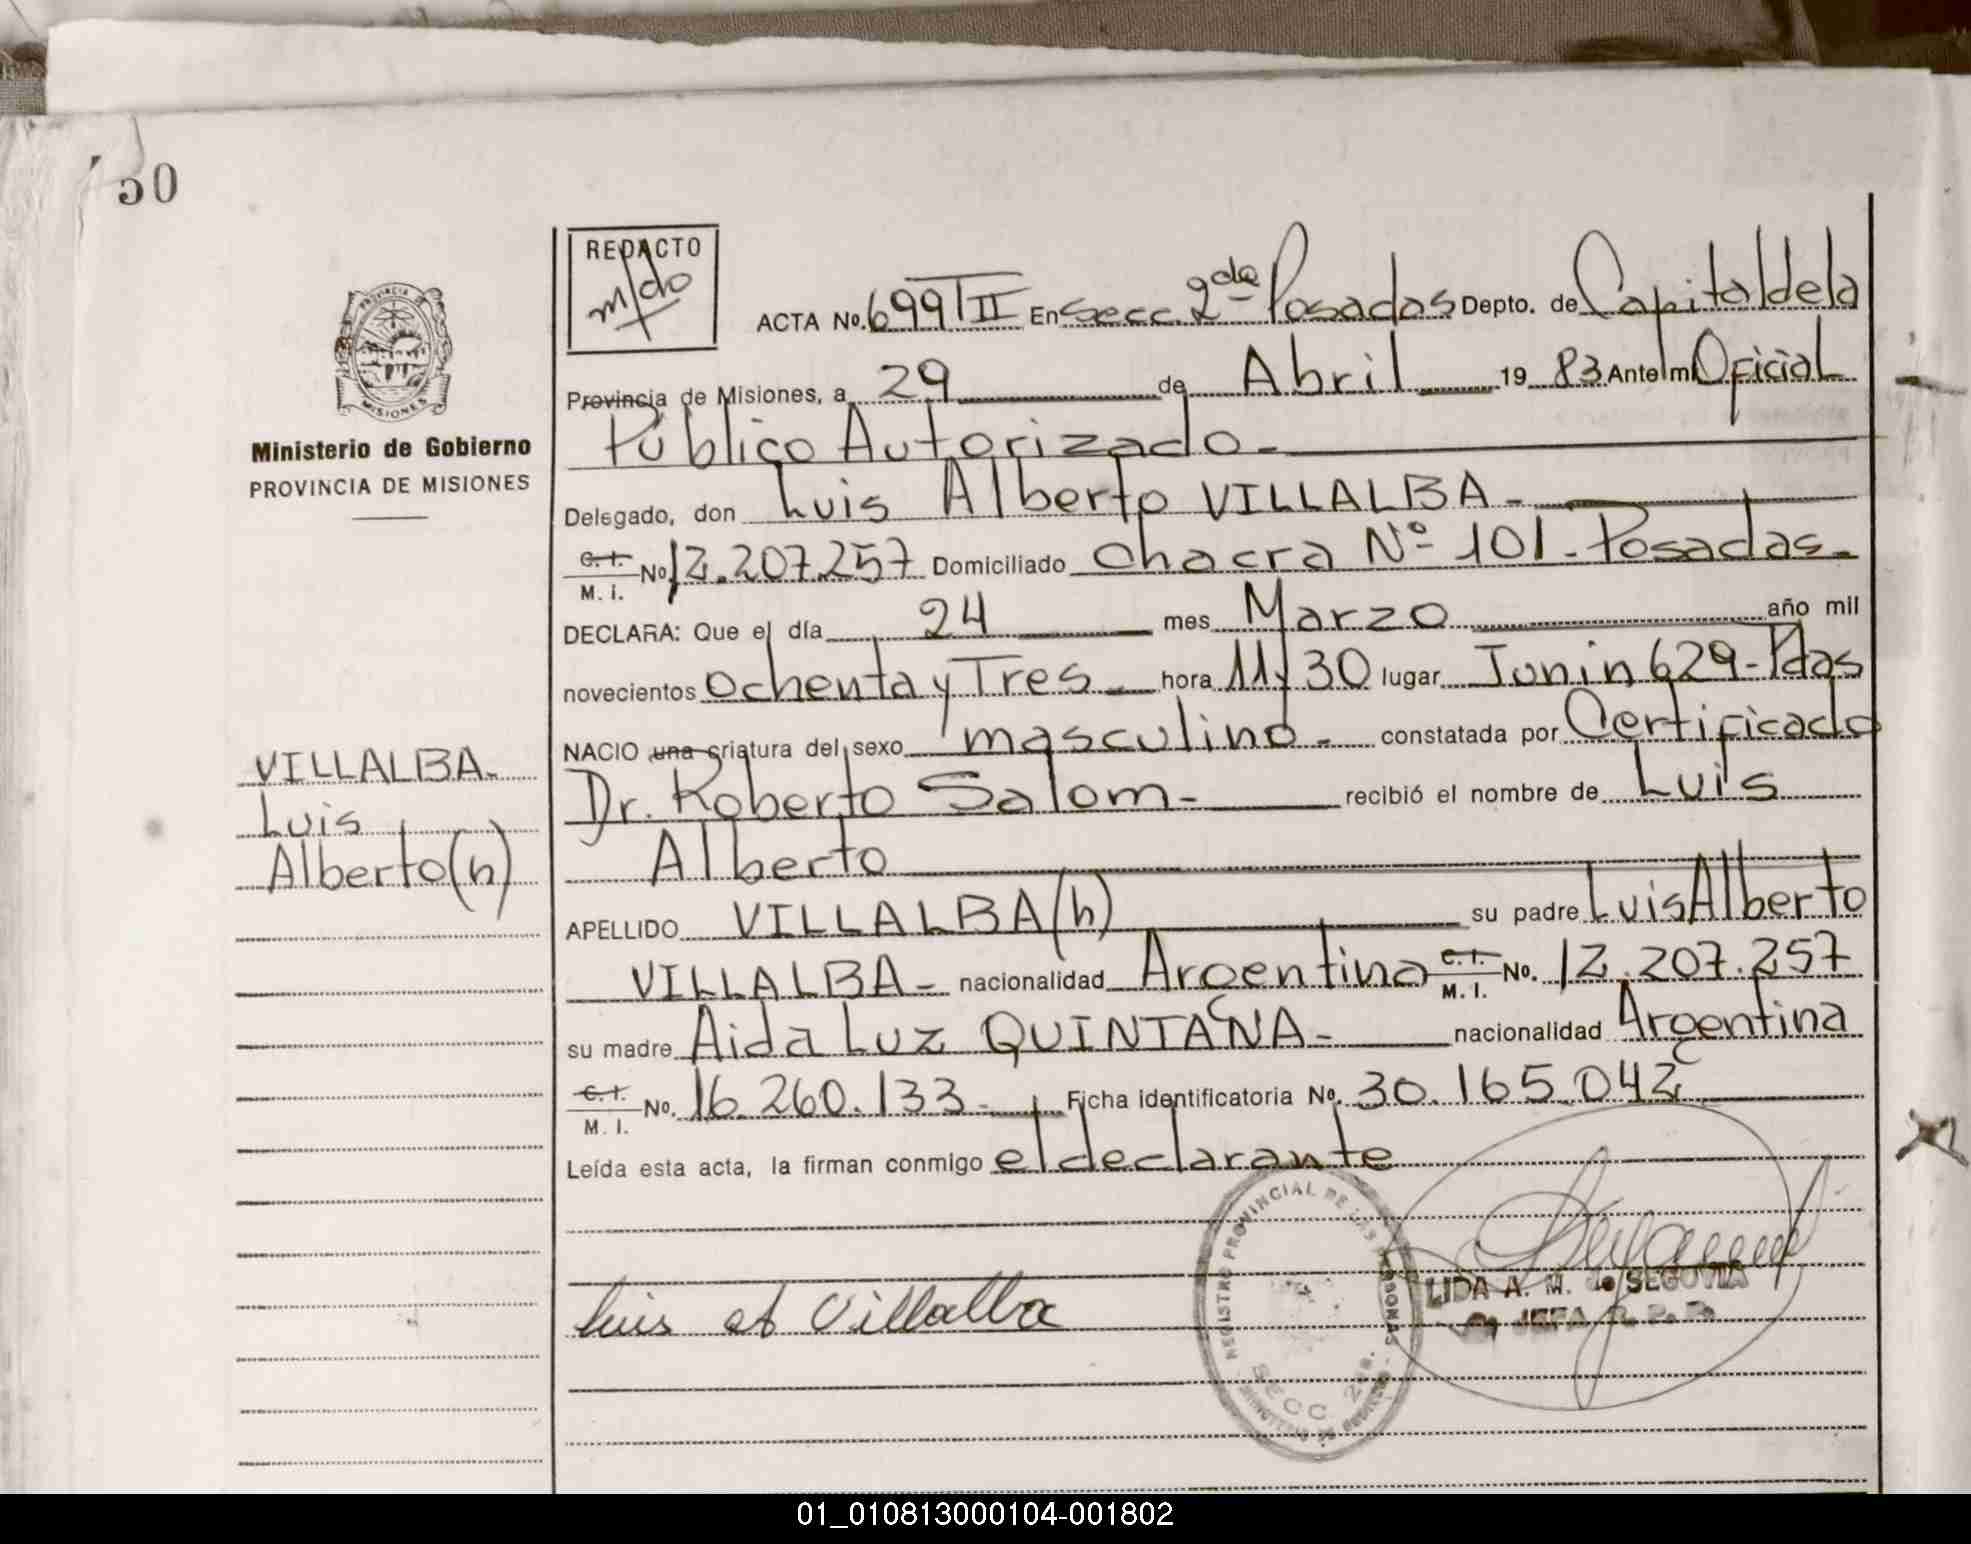 50
REDACTO
PROVINCIA DE
MISIONES
Ministerio de Gobierno
PROVINCIA DE MISIONES
ACTA No. 699 TII En Secc. 2da Posadas Depto. de Capital de la
Provincia de Misiones, a 29 de Abril 19 83 Ante mi Oficial
Público Autorizado-
Delegado, don Luis Alberto VILLALBA-
C.I. M.I. No 12.207.257 Domiciliado Chacra Nº 101-Posadas-
DECLARA: Que el día 24 mes Marzo año mil
novecientos Ochenta y Tres- hora 11y30 lugar Junin 629-Pdas
NACIO una criatura del sexo masculino- constatada por Certificado
Dr. Roberto Salom- recibió el nombre de Luis
Alberto
APELLIDO VILLALBA (h) su padre Luis Alberto
VILLALBA- nacionalidad Argentina C.I. M.I. No. 12.207.257
su madre Aida Luz QUINTANA- nacionalidad Argentina
C.I. M.I. No. 16.260.133- Ficha identificatoria No. 30.165.042
Leída esta acta, la firman conmigo el declarante
VILLALBA-
Luis
Alberto (h)
Luis A Villalba
REGISTRO PROVINCIAL DE LAS PERSONAS
SECC. 2da.
LIDA A. M. de SEGOVIA
JEFA R. P. P.
01_010813000104-001802